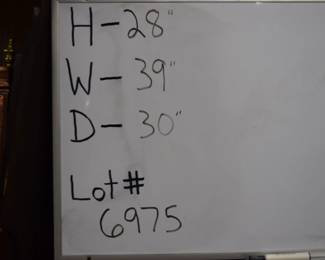 H-28"
W-39"
D-30"
Lot#
6975